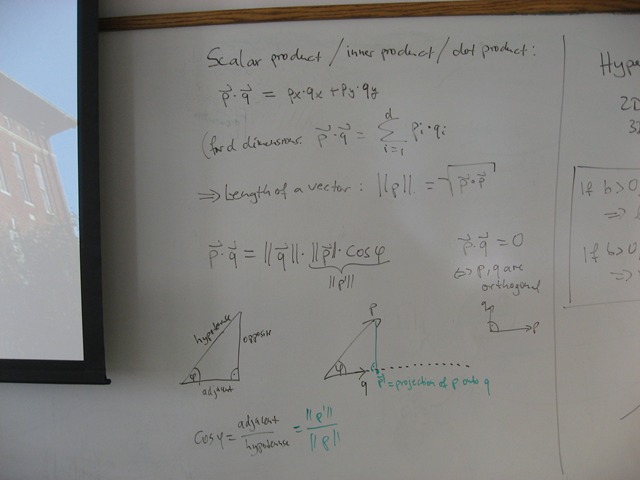 Scalar product / inner product / dot product:
p⃗·q⃗ = px·qx + py·qy
(for d dimensions: p⃗·q⃗ = Σ_{i=1}^{d} pi·qi
⇒ Length of a vector: ||p|| = √(p⃗·p⃗)
p⃗·q⃗ = ||q⃗||·||p⃗||·cosφ
||p'||
p⃗·q⃗ = 0
⇔ p,q are
orthogonal
q
p
hypotenuse
opposite
φ
adjacent
p
φ
q
p⃗' = projection of p onto q
cosφ = adjacent / hypotenuse = ||p'|| / ||p||
Hype
2D
3D
If b>0,
⇒
If b>0,
⇒